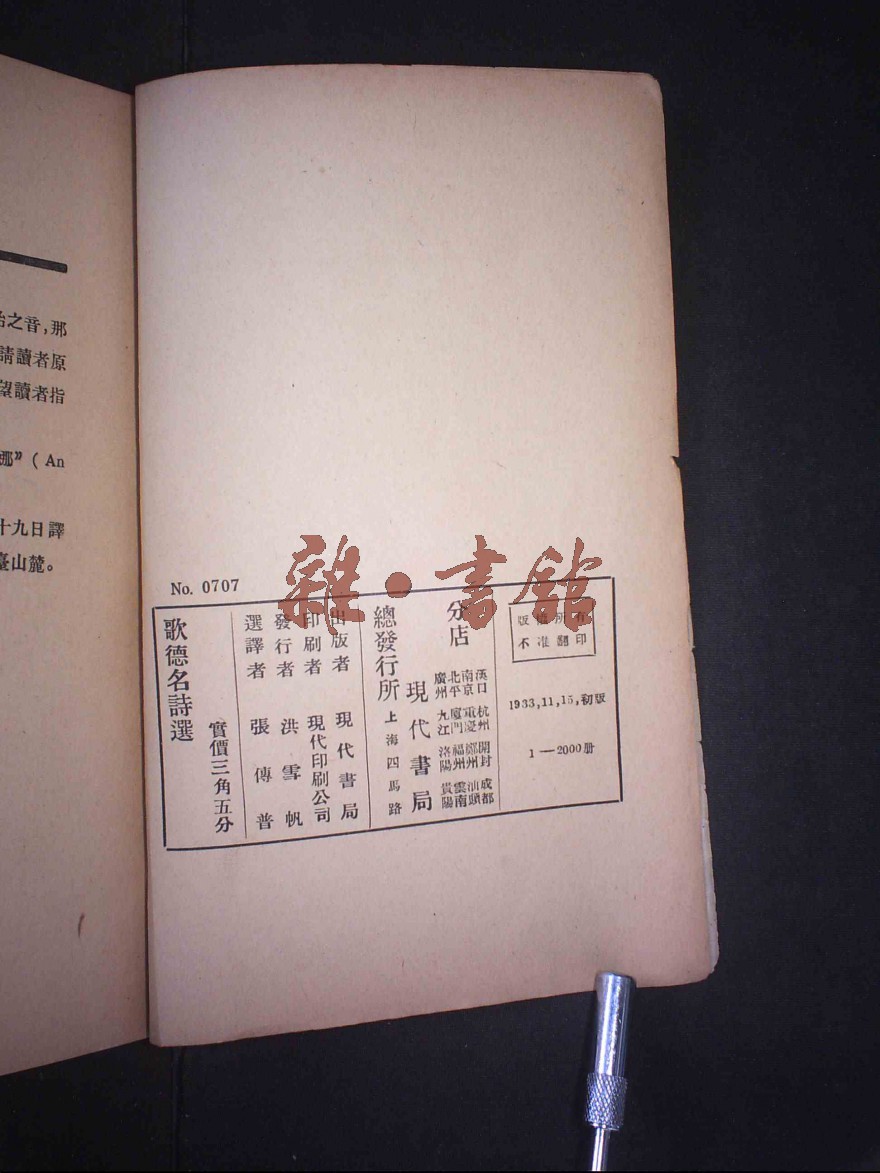 台之音,那
請讀者原
望讀者指
娜” ( An
十九日譯
臺山麓。
No. 0707
版權所有
不准翻印
1933,11,15,初版
1—2000册
分店
漢口 杭州 開封 成都
南京 重慶 鄭州 汕頭
北平 廈門 福州 雲南
廣州 九江 洛陽 貴陽
現代書局
總發行所 上海四馬路
出版者 現代書局
印刷者 現代印刷公司
發行者 洪雪帆
選譯者 張傳普
實價三角五分
歌德名詩選
雜·書館